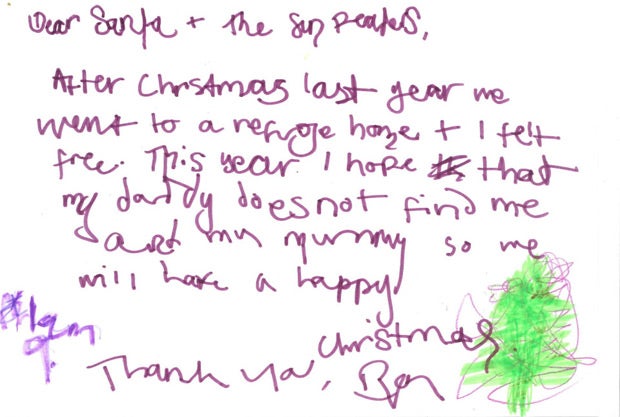 Dear Santa + the Sun Readers,
After Christmas last year we
went to a refuge home + I felt
free. This year I hope that
my daddy does not find me
and my mummy so we
will have a happy
Christmas.
I am
9.
Thank You, Ben